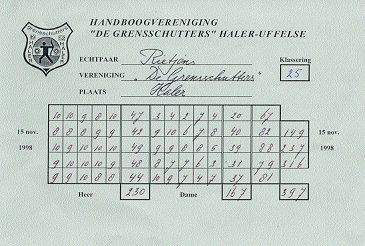 HANDBOOGVERENIGING
"DE GRENSSCHUTTERS" HALER-UFFELSE
Grensschutters
ECHTPAAR Rietjens Klassering
VERENIGING „De Grensschutters" 25
PLAATS Haler
10 10 9 8 10 47 3 4 2 7 4 20 67
15 nov. 8 8 8 9 9 42 9 10 6 7 8 40 82 149 15 nov.
1998 10 9 10 10 10 49 9 9 8 8 5 39 88 237 1998
9 10 9 10 10 48 8 7 7 6 3 31 79 316
9 9 10 8 8 44 10 9 7 4 7 37 81
Heer 230 Dame 167 397